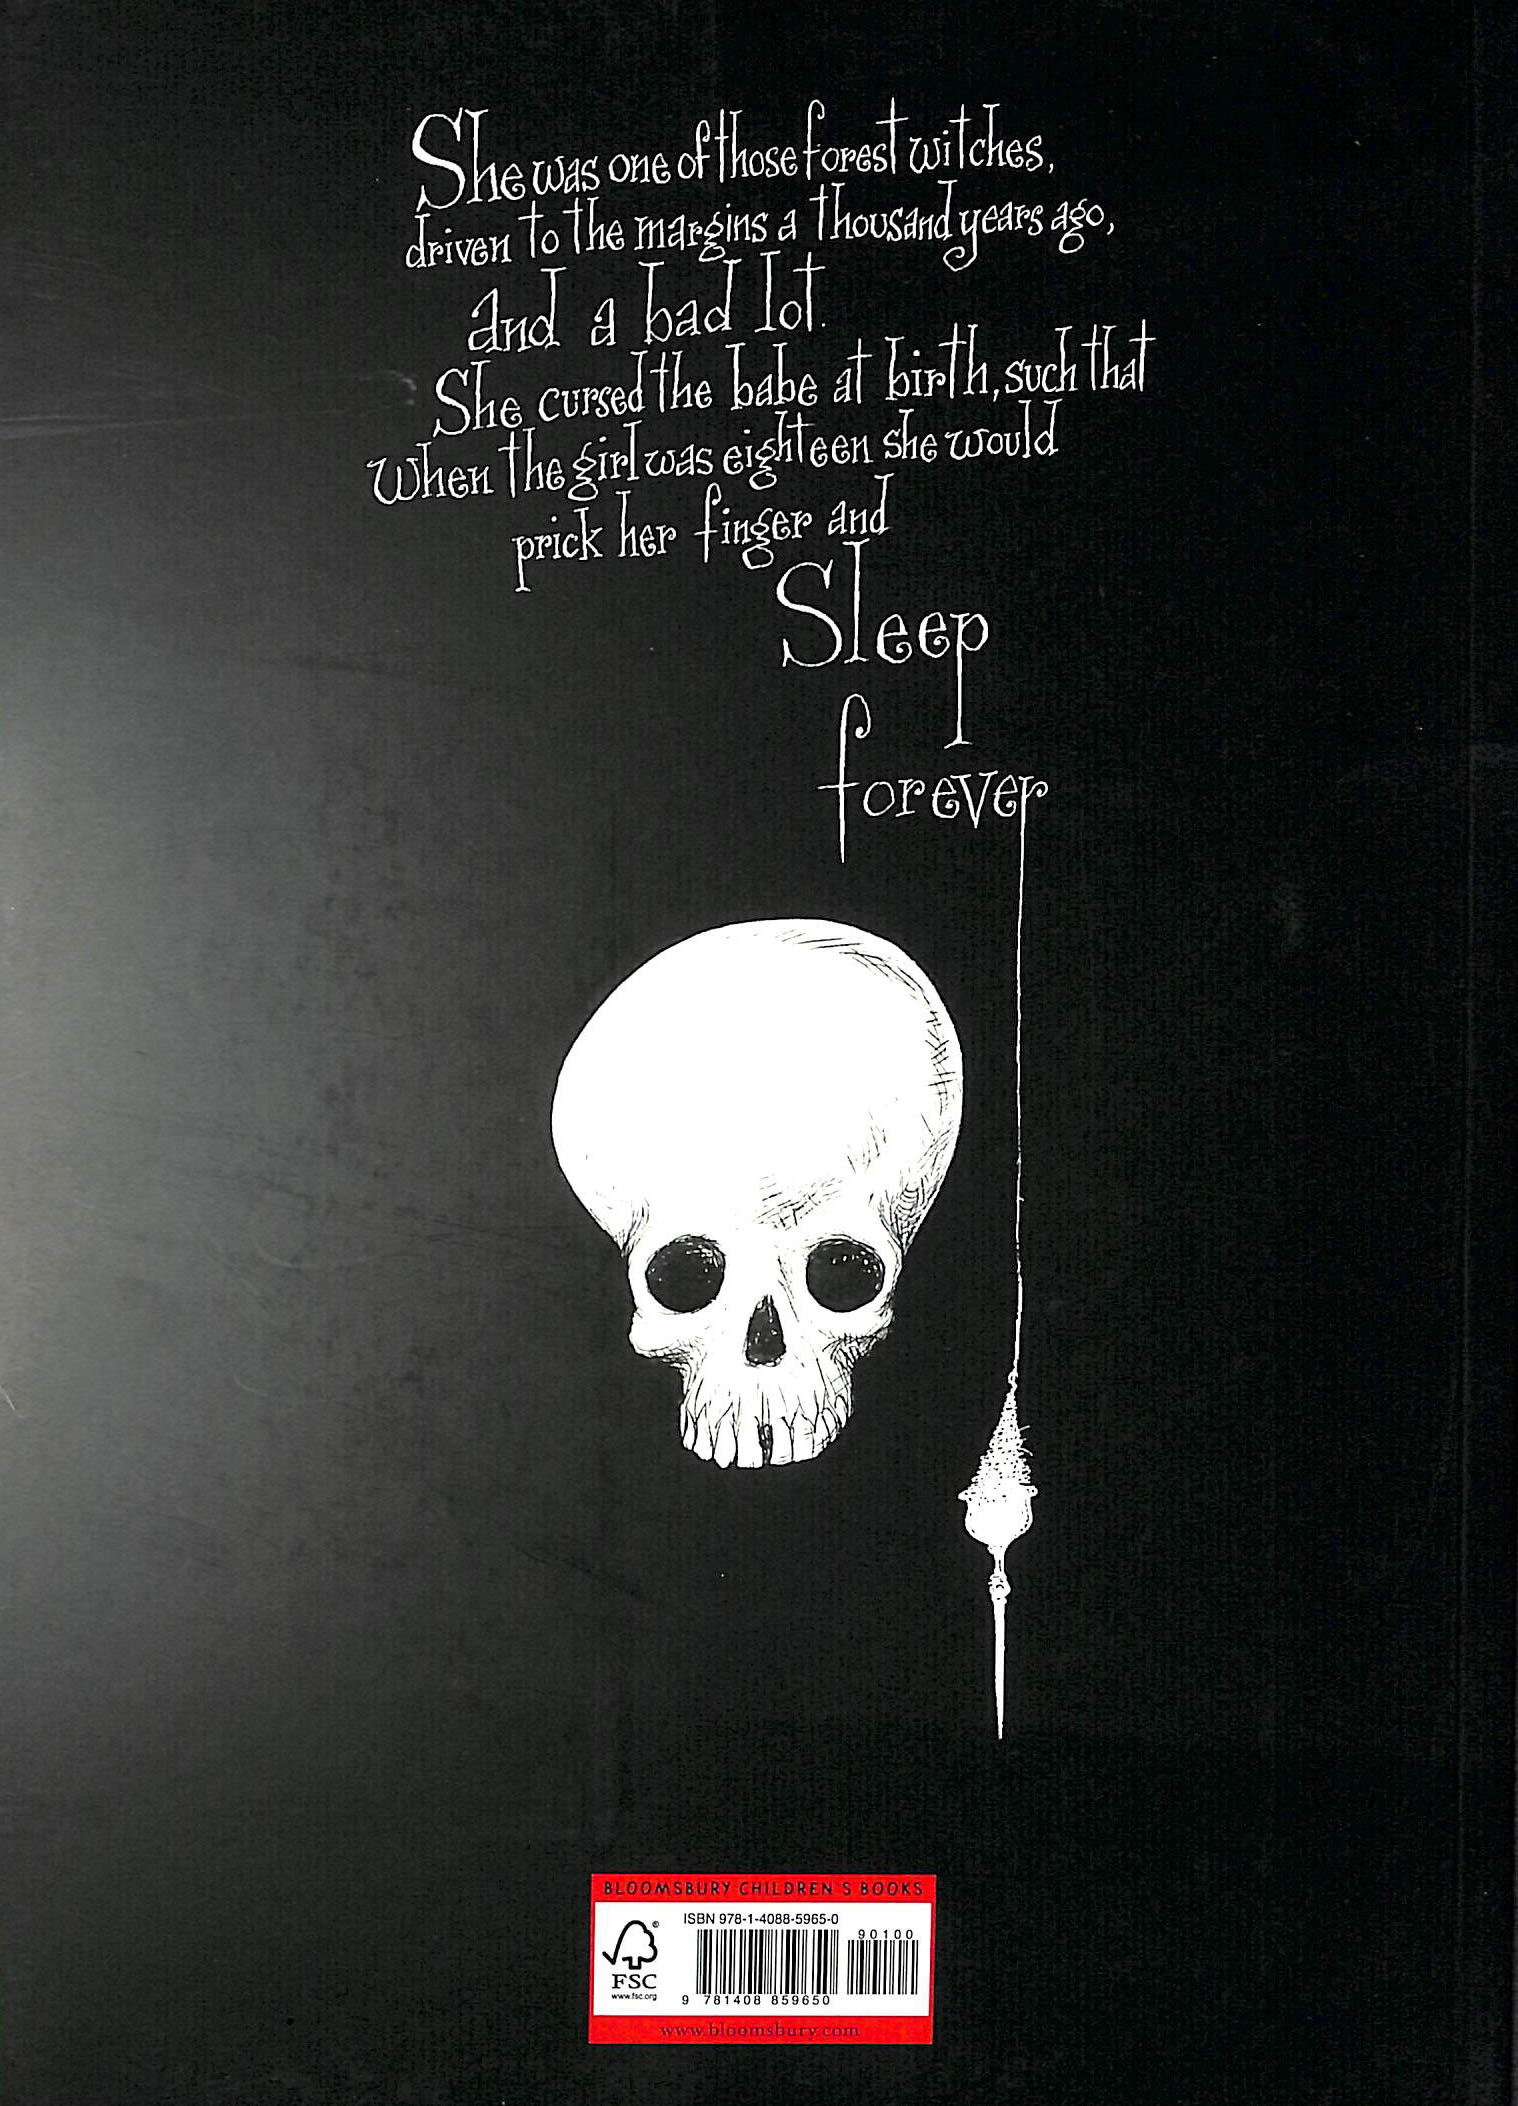 She was one of those forest witches,
driven to the margins a thousand years ago,
and a bad lot.
She cursed the babe at birth, such that
when the girl was eighteen she would
prick her finger and
Sleep
forever
BLOOMSBURY CHILDREN'S BOOKS
ISBN 978-1-4088-5965-0
90100
FSC
www.fsc.org
9 781408 859650
www.bloomsbury.com